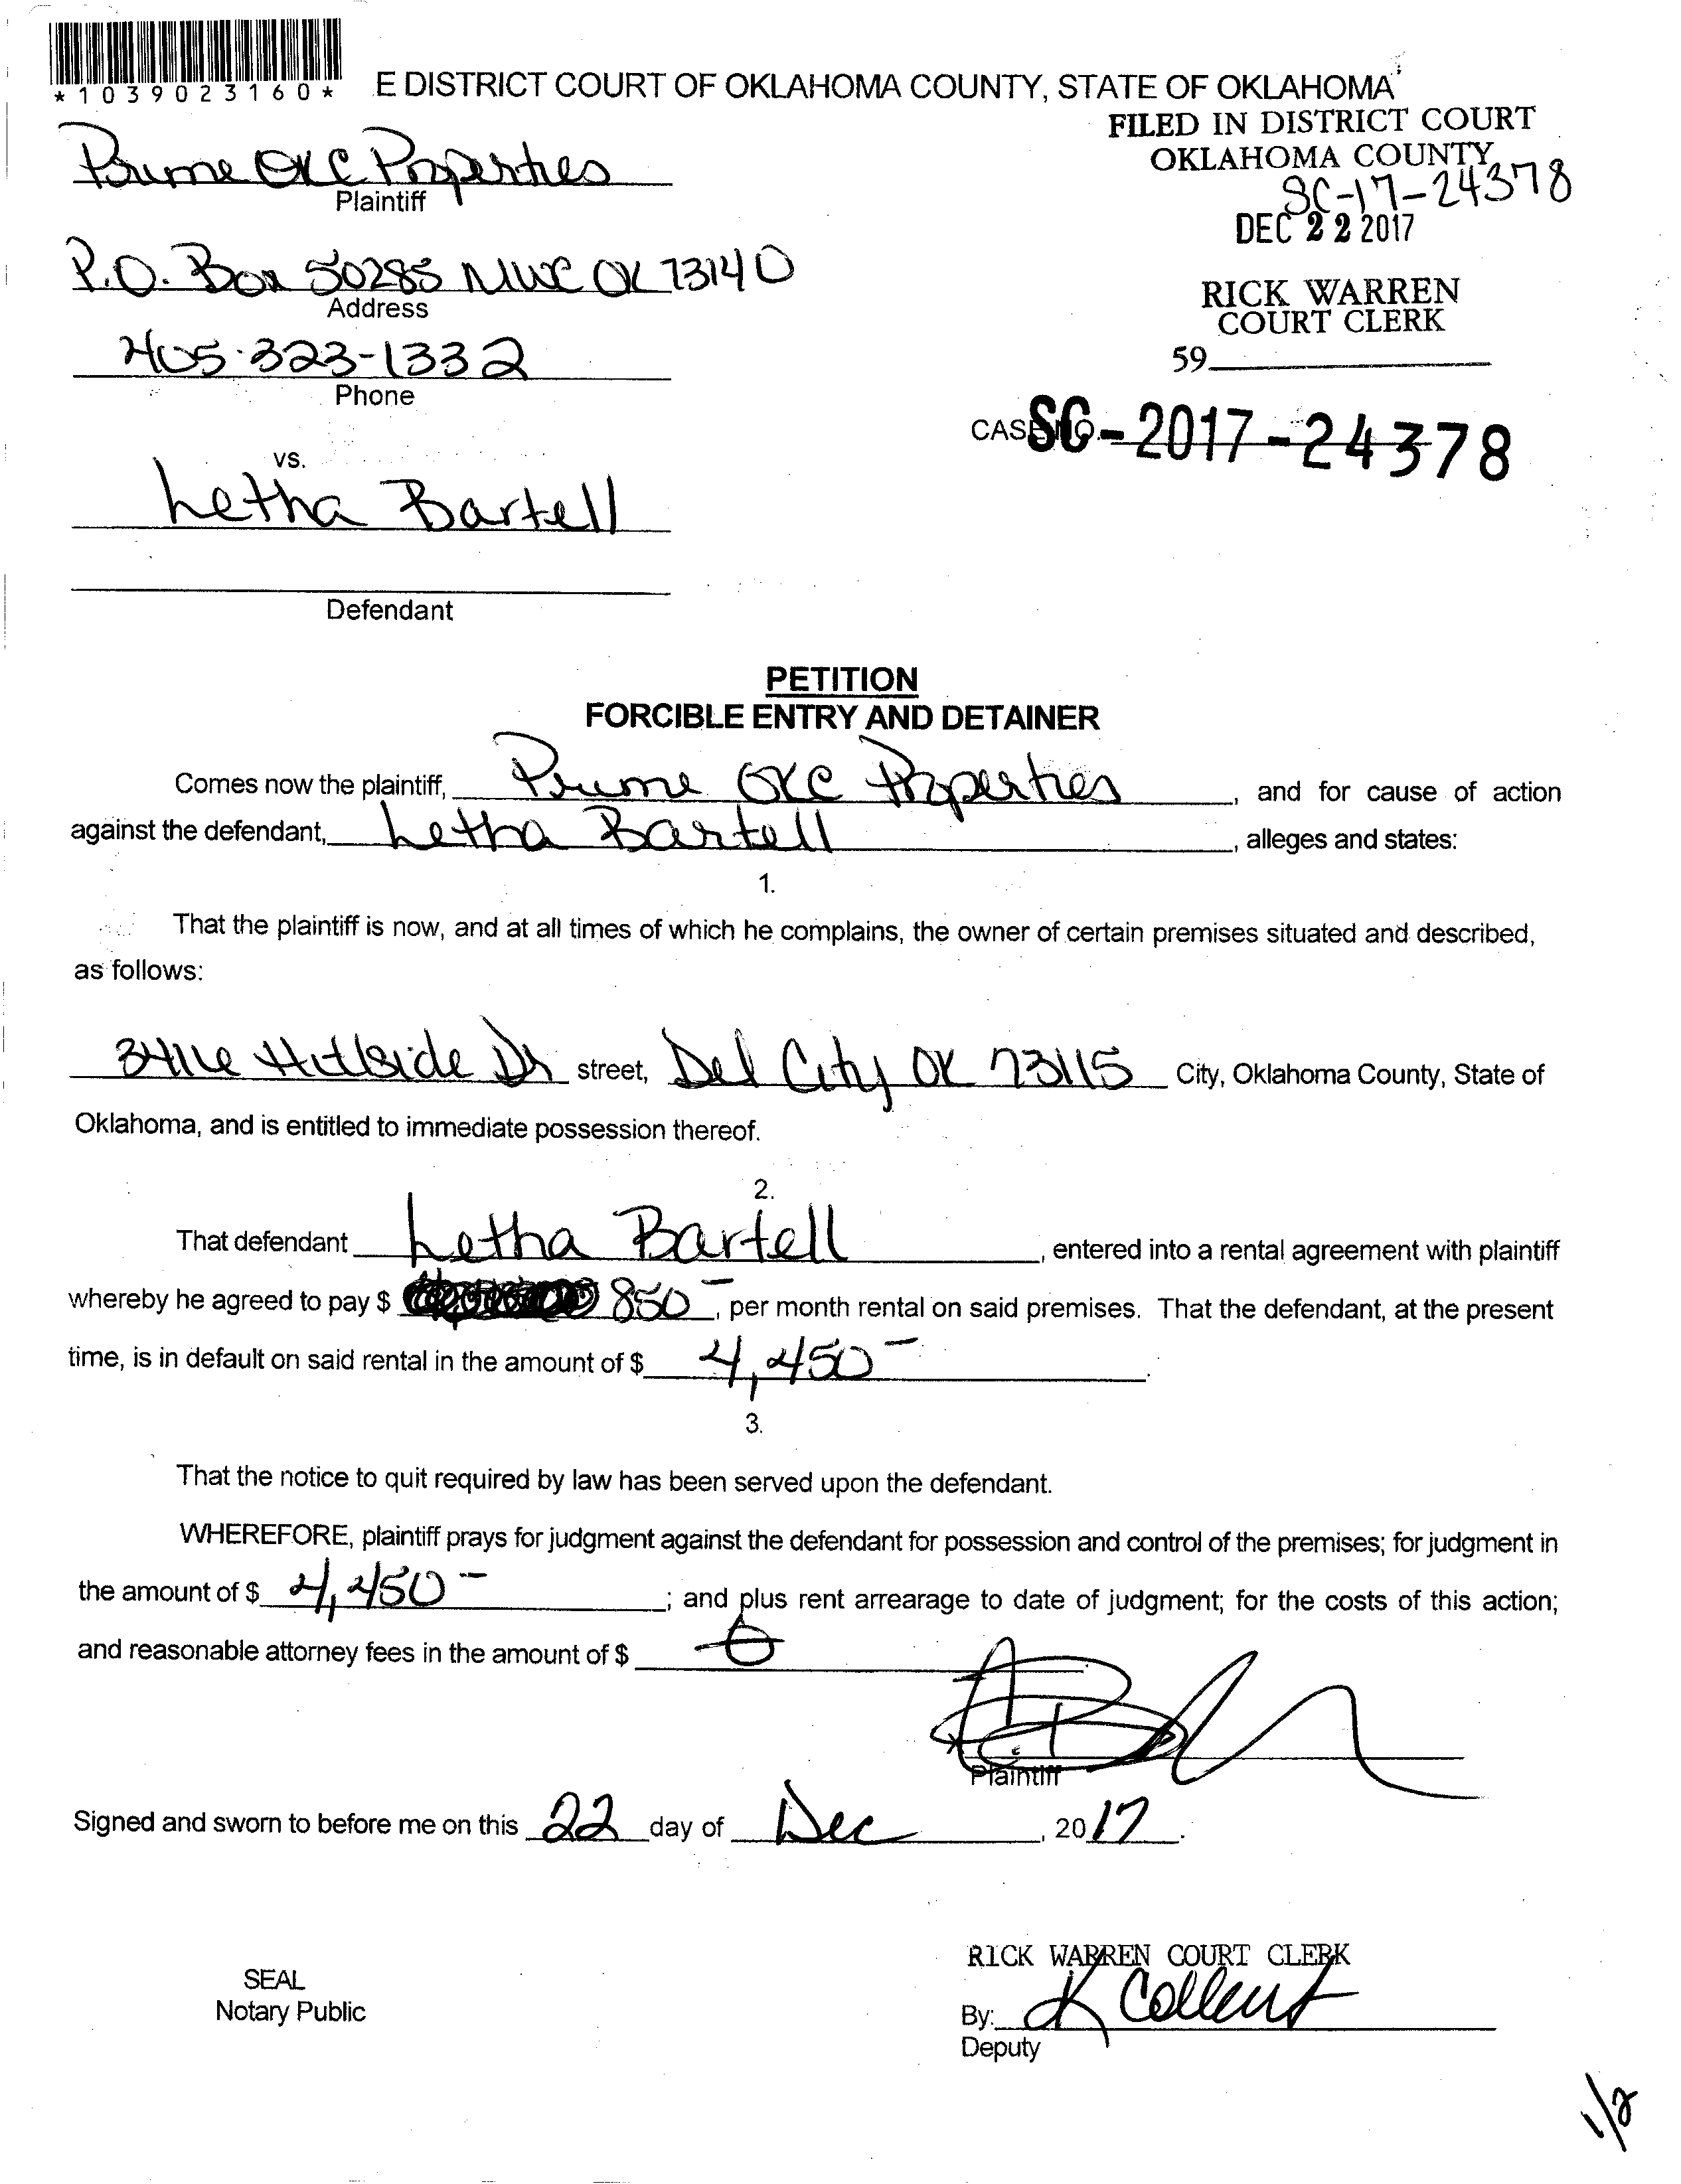 *1039023160*
E DISTRICT COURT OF OKLAHOMA COUNTY, STATE OF OKLAHOMA
FILED IN DISTRICT COURT
OKLAHOMA COUNTY
SC-17-24378
DEC 22 2017
RICK WARREN
COURT CLERK
59
Prime OKC Properties
Plaintiff
P.O. Box 50285 MWC OK 73140
Address
405-323-1332
Phone
CASE NO. SC-2017-24378
vs.
Letha Bartell
Defendant
PETITION
FORCIBLE ENTRY AND DETAINER
Comes now the plaintiff, Prime OKC Properties, and for cause of action
against the defendant, Letha Bartell, alleges and states:
1.
That the plaintiff is now, and at all times of which he complains, the owner of certain premises situated and described,
as follows:
Hillside Dr street, Del City OK 73115 City, Oklahoma County, State of
Oklahoma, and is entitled to immediate possession thereof.
2.
That defendant Letha Bartell, entered into a rental agreement with plaintiff
whereby he agreed to pay $ 850-, per month rental on said premises. That the defendant, at the present
time, is in default on said rental in the amount of $ 4,450-.
3.
That the notice to quit required by law has been served upon the defendant.
WHEREFORE, plaintiff prays for judgment against the defendant for possession and control of the premises; for judgment in
the amount of $ 4,450-; and plus rent arrearage to date of judgment; for the costs of this action;
and reasonable attorney fees in the amount of $ 0
Plaintiff
Signed and sworn to before me on this 22 day of Dec, 2017.
SEAL
Notary Public
RICK WARREN COURT CLERK
By: K
Deputy
1/2